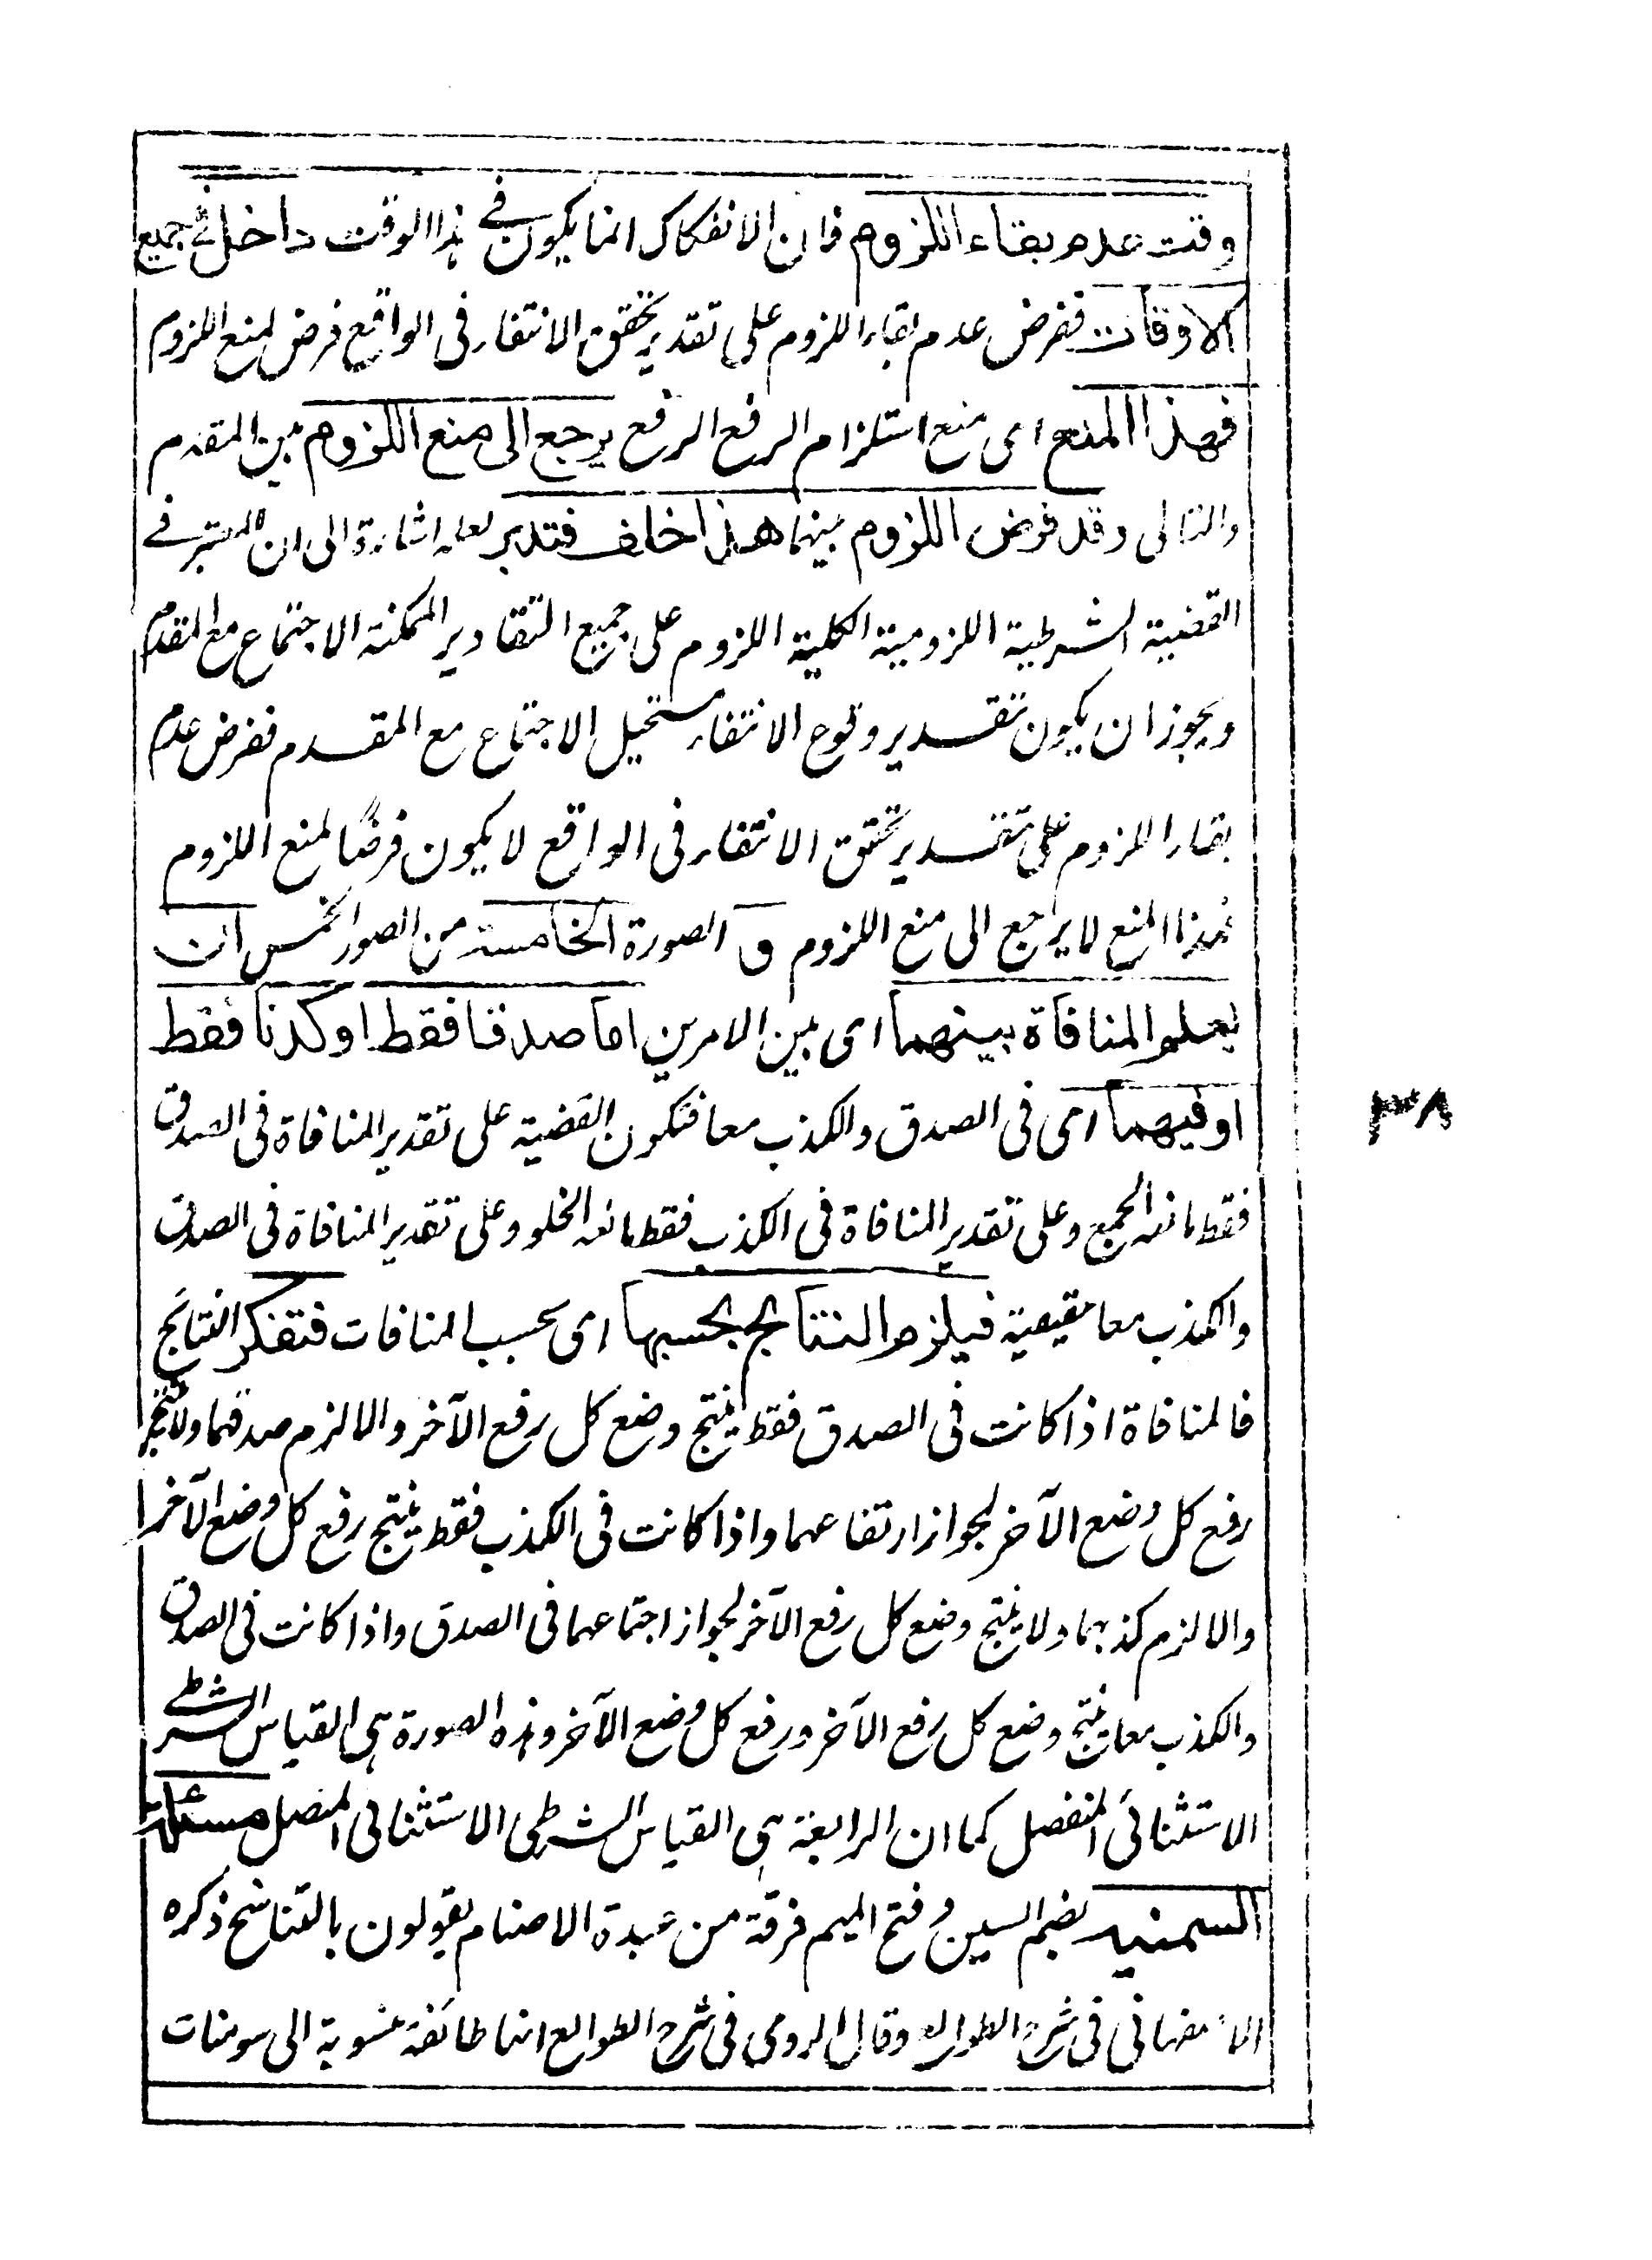 وقت عدم بقاء اللزوم فان الانفكاك انما يكون فى هذا الوقت داخل فى جميع
الاوقات ففرض عدم بقاء اللزوم على تقدير تحقق الانتفاء فى الواقع فرض لمنع اللزوم
فهذا المنع اى منع استلزام الرفع الرفع يرجع الى منع اللزوم بين المقدم
والتالى وقد فرض اللزوم بينهما هذا خلف فتدبر لعله اشارة الى ان المعتبر فى
القضية الشرطية اللزومية الكلية اللزوم على جميع التقادير الممكنة الاجتماع مع المقدم
ويجوز ان يكون تقدير وقوع الانتفاء مستحيل الاجتماع مع المقدم ففرض عدم
بقاء اللزوم على تقدير تحقق الانتفاء فى الواقع لا يكون فرضًا لمنع اللزوم
فهذا المنع لا يرجع الى منع اللزوم و الصورة الخامسة من الصور الخمس ان
يعلم المنافاة بينهما اى بين الامرين اما صدقا فقط او كذبا فقط
او فيهما اى فى الصدق والكذب معا فتكون القضية على تقدير المنافاة فى الصدق
فقط مانعة الجمع وعلى تقدير المنافاة فى الكذب فقط مانعة الخلو وعلى تقدير المنافاة فى الصدق
والكذب معا حقيقية فيلزم النتائج بحسبها اى بحسب المنافات فتفكر النتائج
فالمنافاة اذا كانت فى الصدق فقط ينتج وضع كل رفع الآخر والا لزم صدقهما ولا ينتج
رفع كل وضع الآخر لجواز ارتفاعهما واذا كانت فى الكذب فقط ينتج رفع كل وضع الآخر
والا لزم كذبهما ولا ينتج وضع كل رفع الآخر لجواز اجتماعهما فى الصدق واذا كانت فى الصدق
والكذب معا ينتج وضع كل رفع الآخر ورفع كل وضع الآخر وهذه الصورة هى القياس الشرطى
الاستثنائى المنفصل كما ان الرابعة هى القياس الشرطى الاستثنائى المتصل مسئلة
السمنيه بضم السين وفتح الميم فرقة من عبدة الاصنام يقولون بالتناسخ ذكره
الاصفهانى فى شرح الطوالع وقال الرومى فى شرح الطوالع انها طائفة منسوبة الى سومنات
٣٨